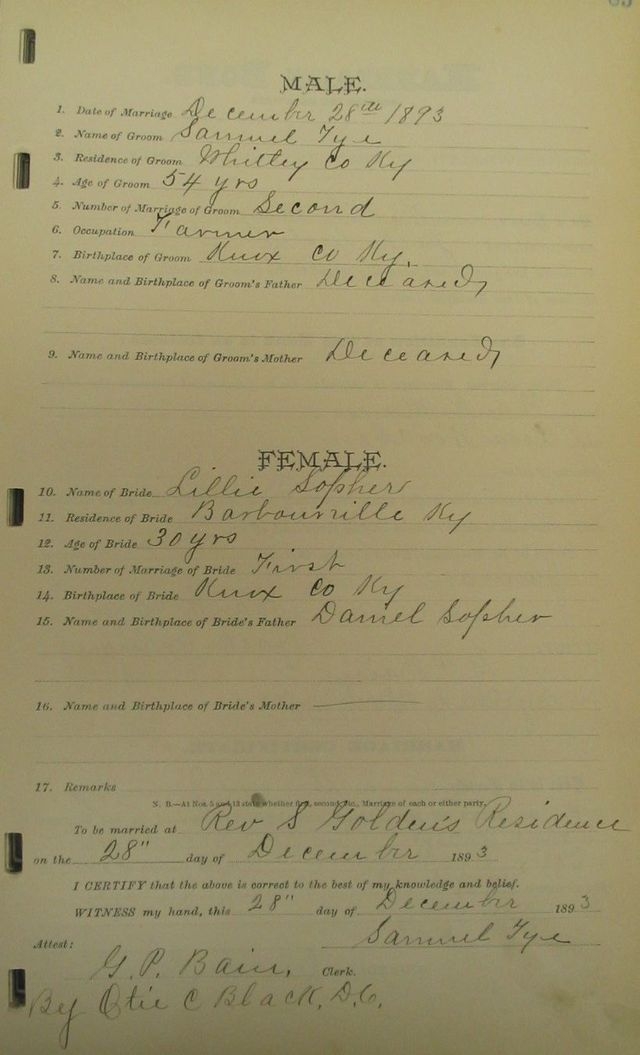 MALE.
1. Date of Marriage December 28th 1893
2. Name of Groom Samuel Tye
3. Residence of Groom Whitley Co Ky
4. Age of Groom 54 yrs
5. Number of Marriage of Groom Second
6. Occupation Farmer
7. Birthplace of Groom Knox Co Ky.
8. Name and Birthplace of Groom's Father Deceased
9. Name and Birthplace of Groom's Mother Deceased
FEMALE.
10. Name of Bride Lillie Sopher
11. Residence of Bride Barbourville Ky
12. Age of Bride 30 yrs
13. Number of Marriage of Bride First
14. Birthplace of Bride Knox Co Ky
15. Name and Birthplace of Bride's Father Daniel Sopher
16. Name and Birthplace of Bride's Mother
17. Remarks
N. B.—At Nos. 5 and 13 state whether first, second, etc., Marriage of each or either party.
To be married at Rev S Golden's Residence
on the 28" day of December 1893
I CERTIFY that the above is correct to the best of my knowledge and belief.
WITNESS my hand, this 28" day of December 1893
Samuel Tye
Attest:
G. P. Bain, Clerk.
By Otie C Black, D.C.